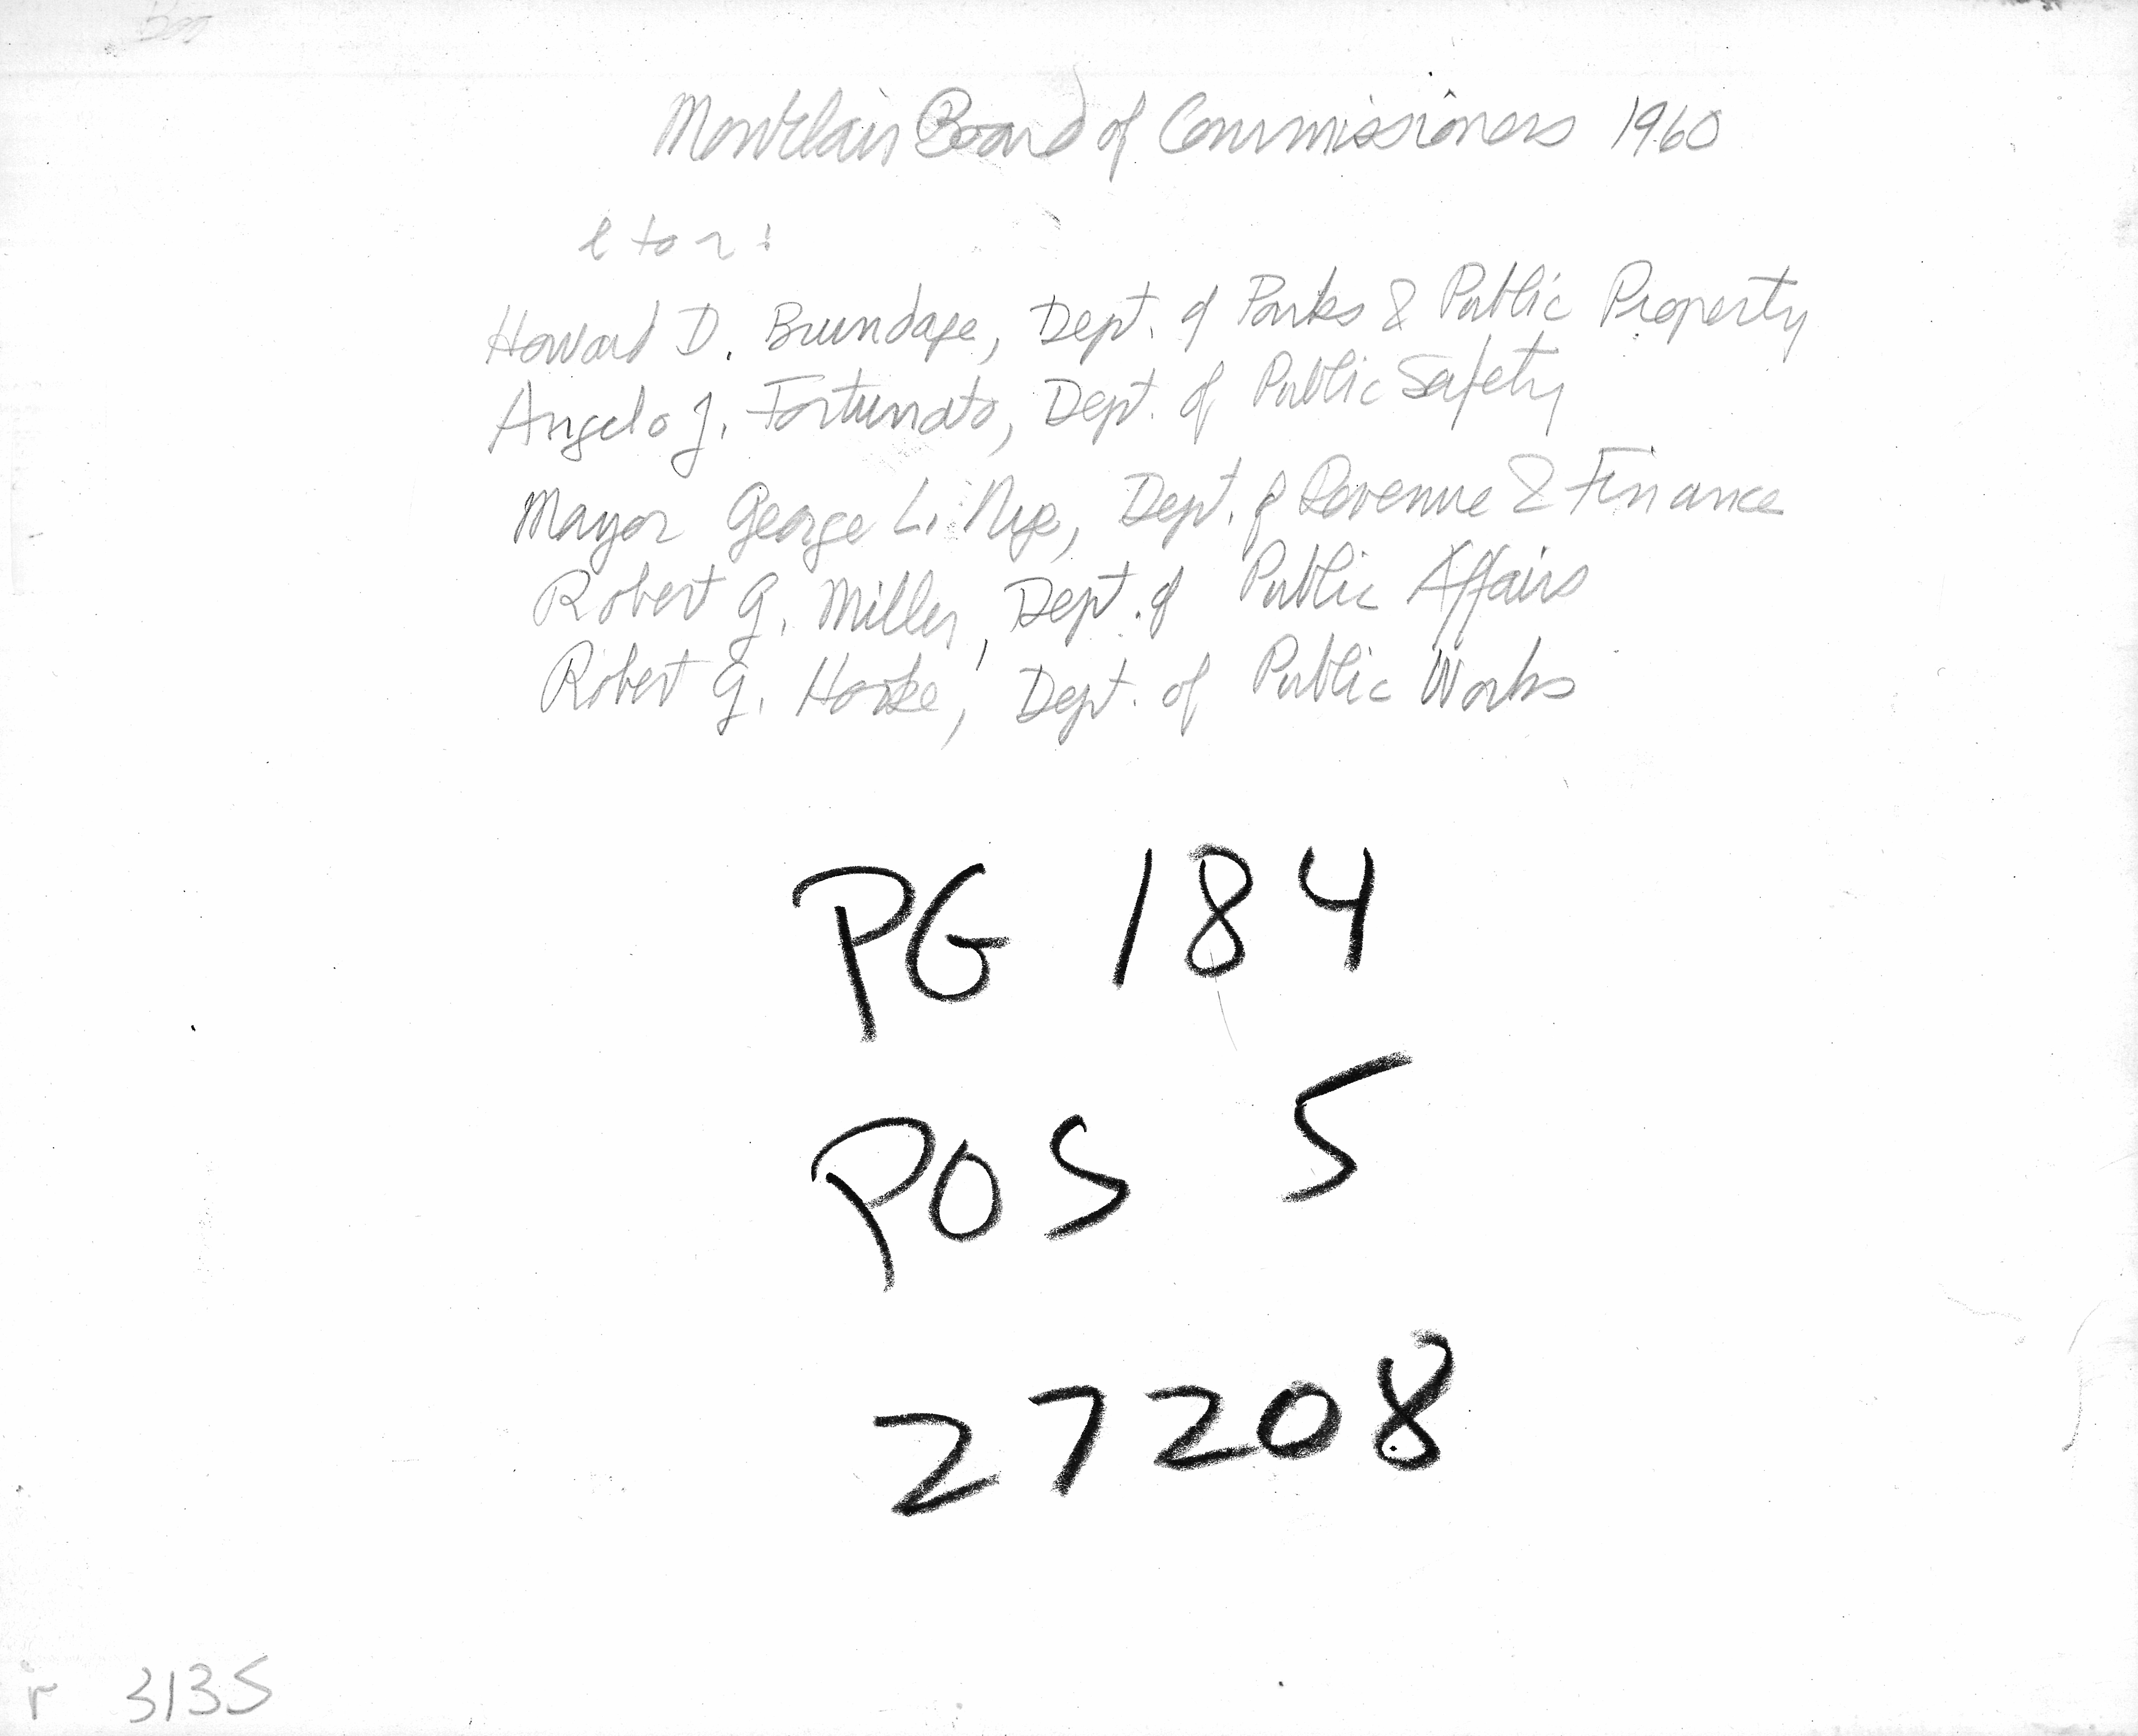 Montclair Board of Commissioners 1960
l to r:
Howard D. Brundage, Dept. of Parks & Public Property
Angelo J. Fortunato, Dept. of Public Safety
Mayor George L. Nye, Dept. of Revenue & Finance
Robert G. Miller, Dept. of Public Affairs
Robert G. Harke, Dept. of Public Works
PG 184
POS 5
27208
r 3135